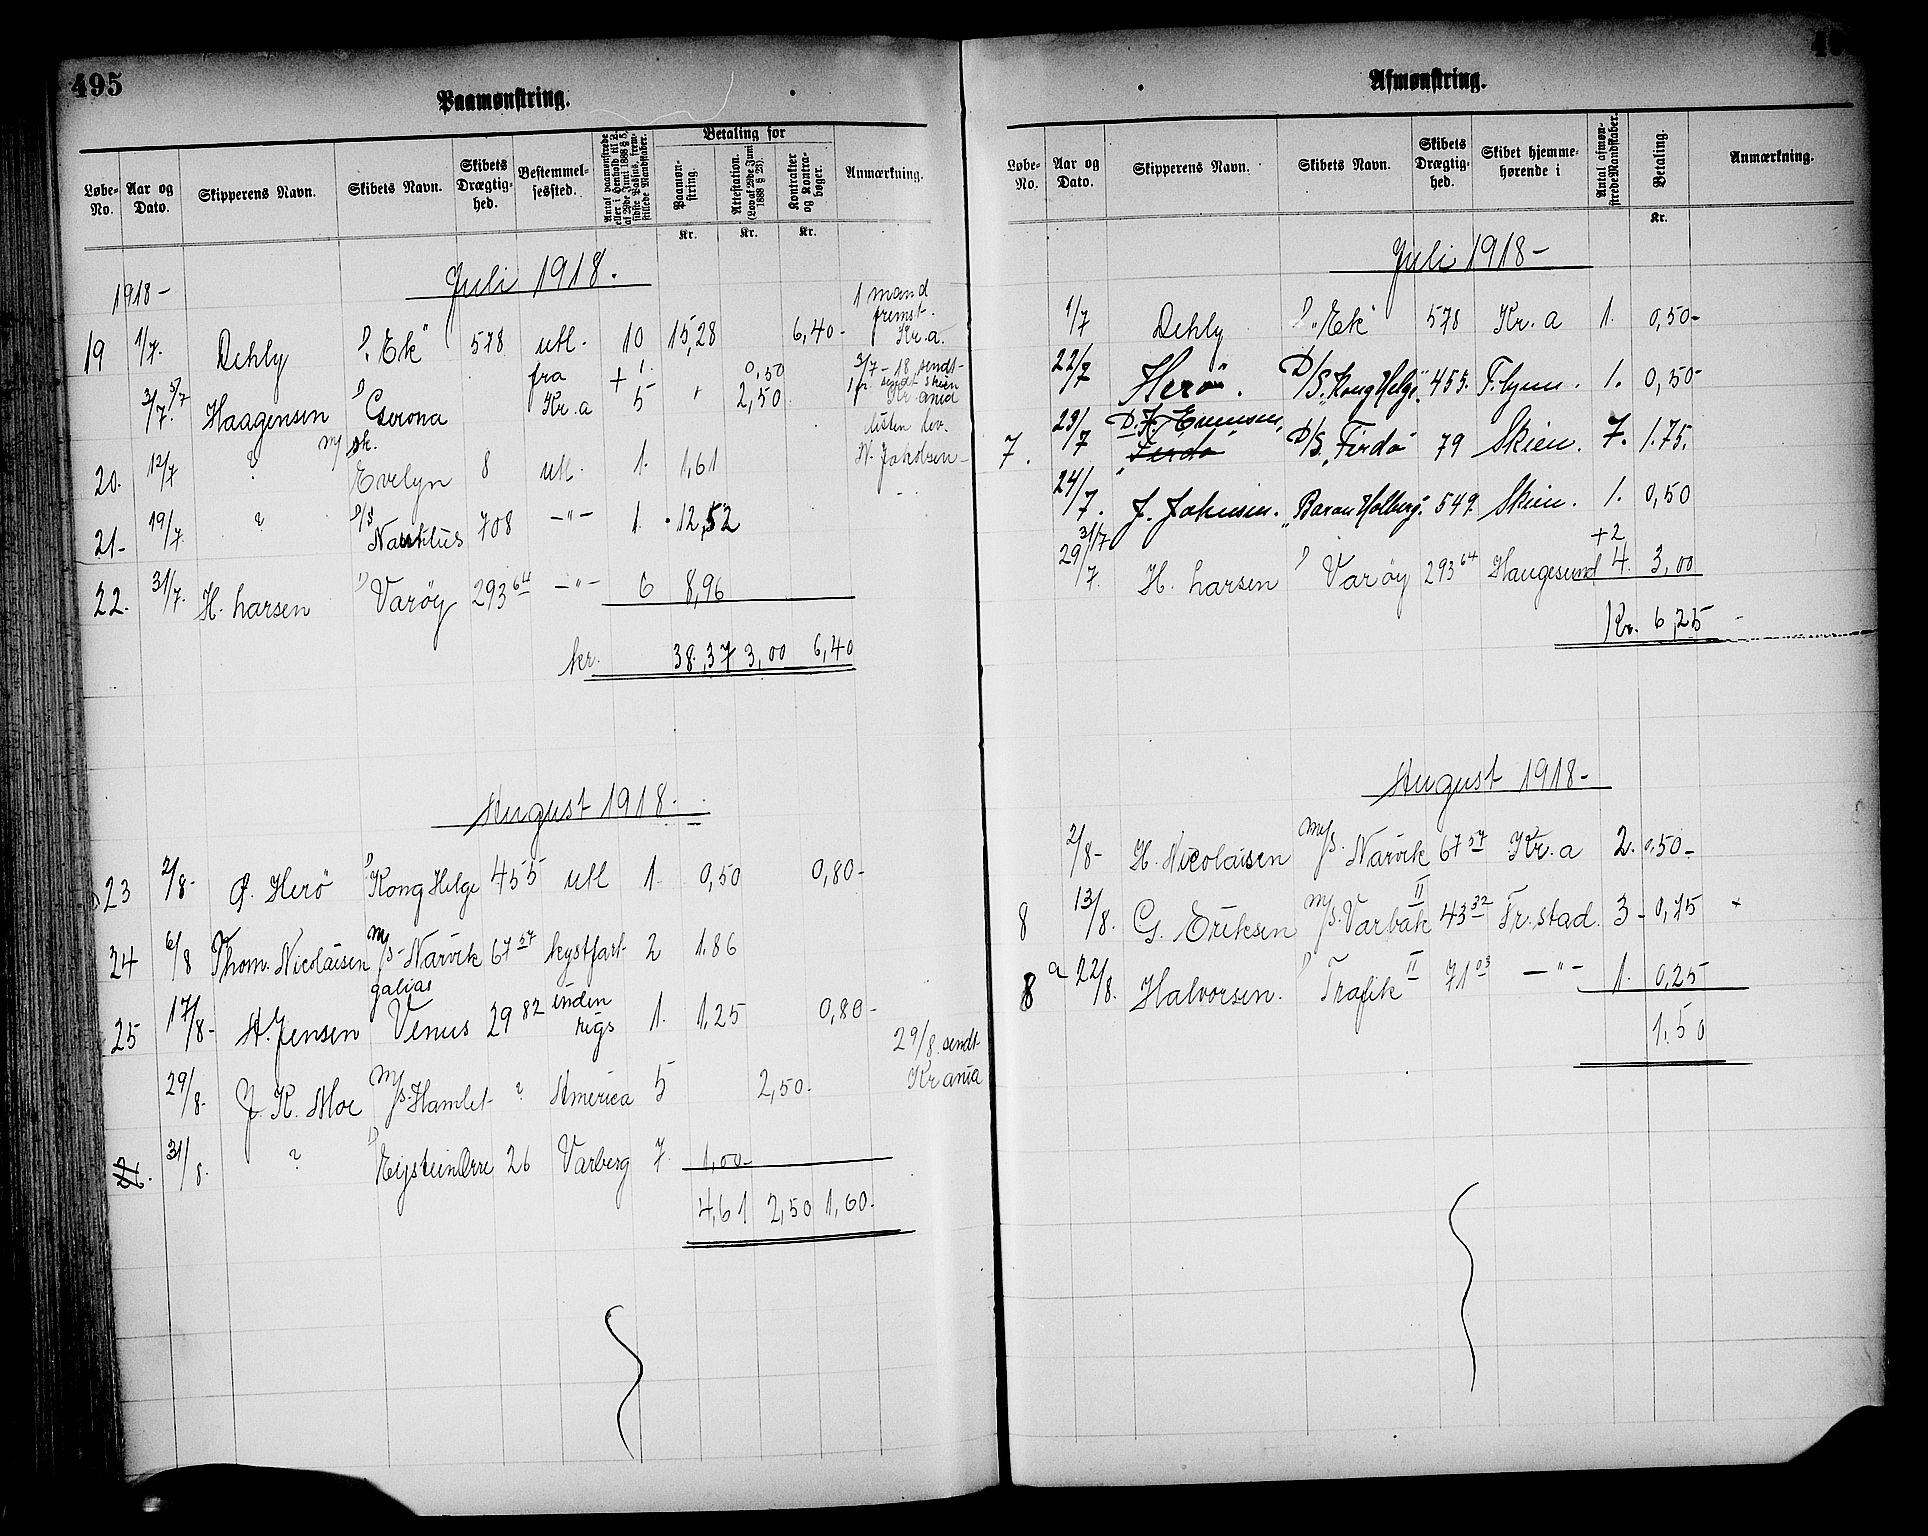 495
Paamønstring.
Løbe-No. Aar og Dato. Skipperens Navn. Skibets Navn. Skibets Drægtig-hed. Bestemmel-sessted. Antal paamønstrede eller i Henhold til L. af 29de Juni 1888 § 5, sidste Passus, frem-stillede Mandskaber. Betaling for Paamøn-string. Attestation. (Lov af 29de Juni 1888 § 28). Kontrakter og Kontra-bøger. Anmærkning.
Kr. Kr. Kr.
Juli 1918.
1918-
19 1/7. Dehly D. "Ek" 578 utl. 10 15,28 6,40- 1 mand fremst. Kr.a.
3/7. 5/7 Haagensen D Gerona fra Kr.a + 1. 5 " 0,50 2,50 3/7-18 sendt Kr.ania
listen lev.
20. 12/7 ? m/sk. Evelyn 8 utl. 1. 1,61 N. Jakobsen-
21- 19/7 ? D/S Nautilus 708 -"- 1. 12,52
22. 31/7. H. Larsen D Varøy 293 64 -"- 6 8,96
kr. 38,37 3,00 6,40
August 1918.
23 2/8- O. Herö D Kong Helge 455 utl 1. 0,50 0,80-
24 6/8 Thom. Nicolaisen m/s- Narvik 67 57 kystfart 2 1.86
25 17/8- A. Jensen galias Venus 29 82 indenrigs 1. 1,25 0,80-
29/8- J. K. Moe m/s-Hamlet ? America 5 2,50. 29/8. sendt Kr ania
26. 31/8. ? D Eystein Orre 26 Varberg 7. 1,00-
4,61 2,50 1,60.
Afmønstring.
Løbe-No. Aar og Dato. Skipperens Navn. Skibets Navn. Skibets Drægtig-hed. Skibet hjemme-hørende i Antal afmøn-strede Mandskaber. Betaling. Anmærkning.
Kr.
Juli 1918-
1/7 Dehly D "Ek" 578 Kr. a 1. 0,50-
22/7 Herö. D/S. "Kong Helge" 455. T. 1. 0,50-
7. 23/7 D. H. Evensen, "Firda" D/S. "Firda" 79 Skien. 7. 1.75.
24/7. J. Johnsen. "Baron Holberg". 549. Skien. 1. 0,50
29/7. 31/7 H. Larsen D Varøy 293 64 Haugesund +2 4. 3,00
Kr. 6,25
August 1918-
2/8- H. Nicolaisen m/s. Narvik 67 57 Kr. a 2. 0,50-
8 13/8. G. Eriksen m/s. Varbak II 43 32 Fr.stad. 3- 0,75
8 a 22/8. Halvorsen. D Trafik II 71 03 -"- 1. 0,25
1,50